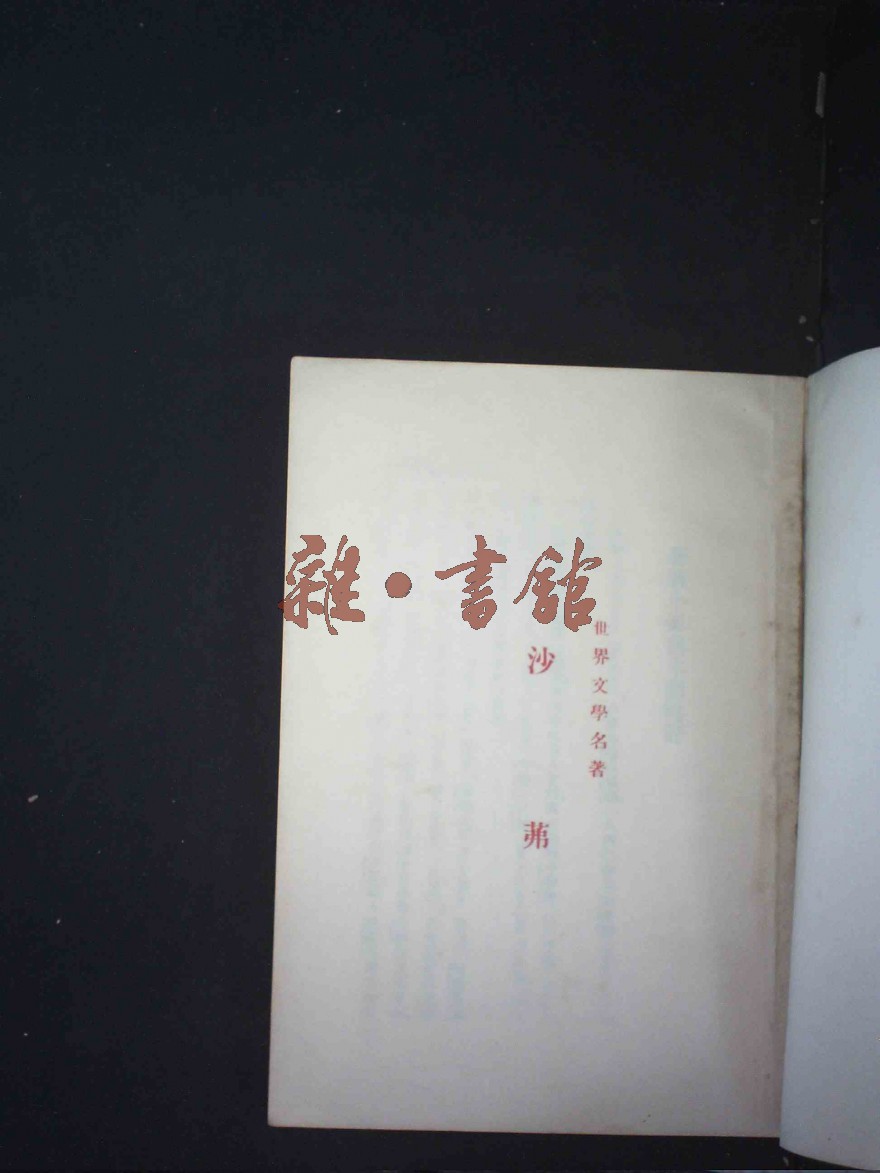 雜·書館
世界文學名著
沙茀